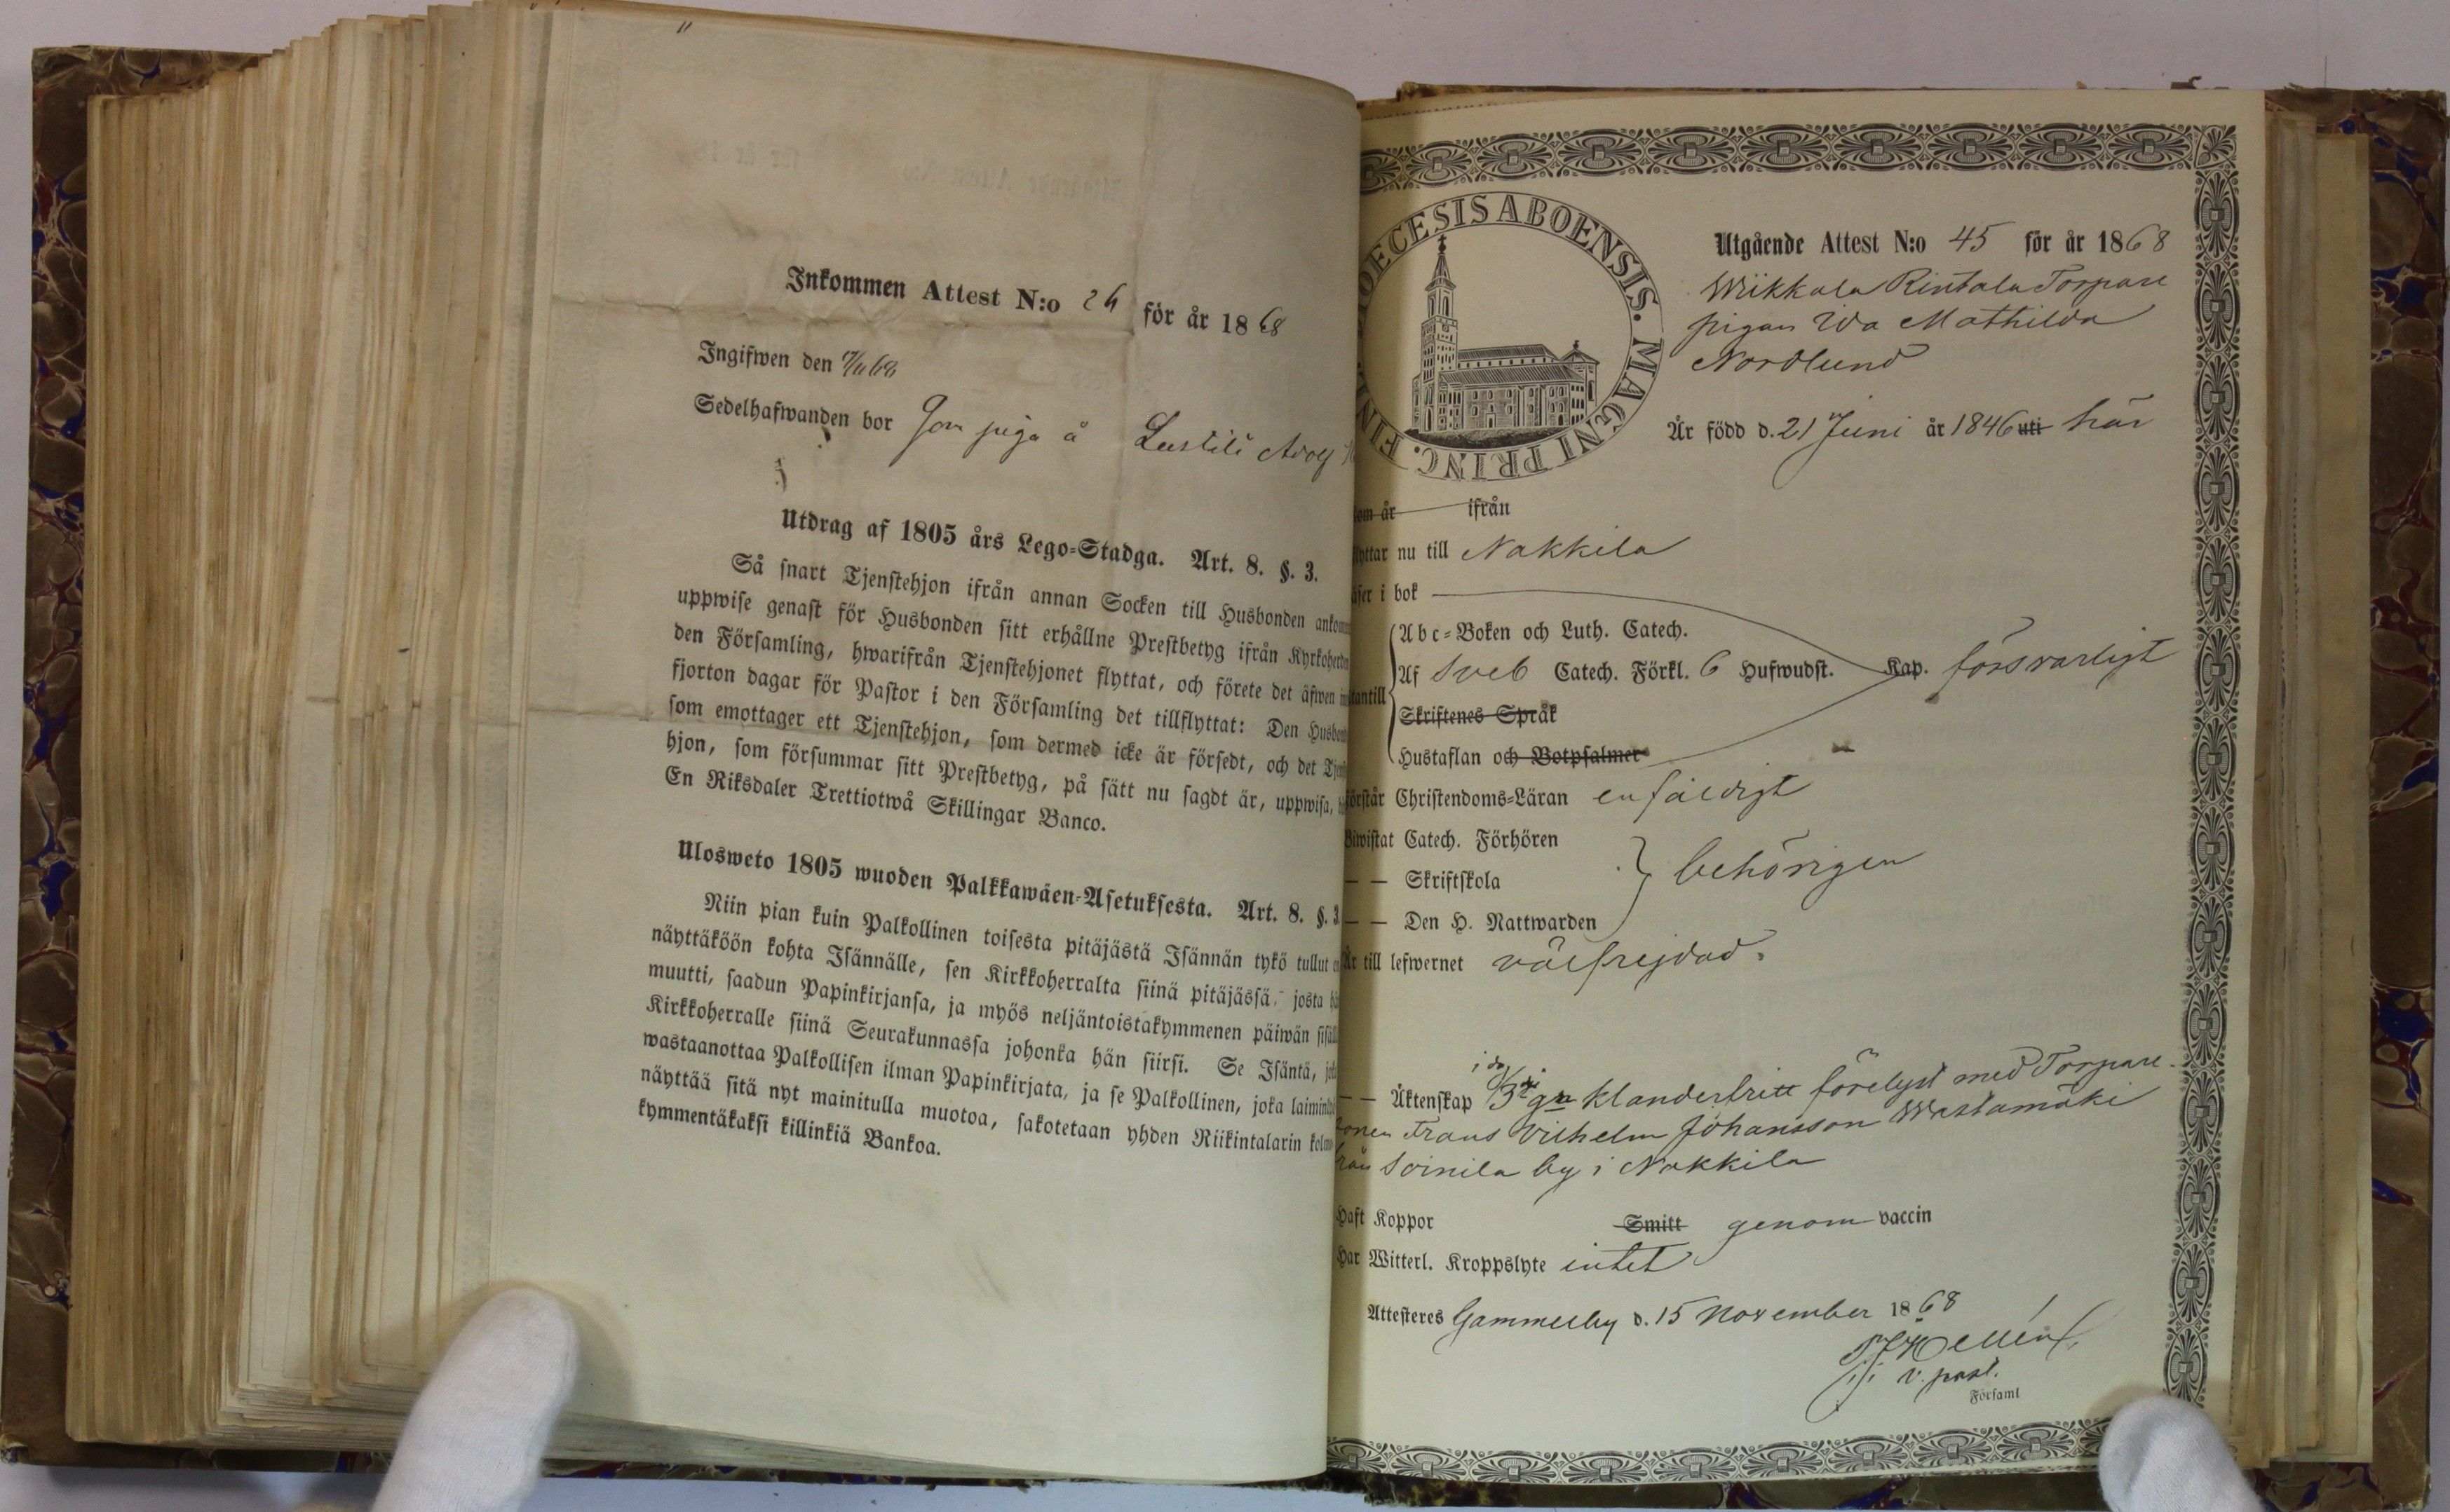 Inkommen Attest N:o 24 för år 1868
Ingifwen den 68
Sedelhafwanden bor Som piga å Adolf
Utdrag af 1805 års Lego-Stadga. Art. 8. §. 3.
Så snart Tjenstehjon ifrån annan Socken till Husbonden
uppwise genast för Husbonden sitt erhållne Prestbetyg ifrån
den Församling, hwarifrån Tjenstehjonet flyttat, och förete det äfwen
fjorton dagar för Pastor i den Församling det tillflyttat: Den
som emottager ett Tjenstehjon, som dermed icke är försedt, och det
hjon, som försummar sitt Prestbetyg, på sätt nu sagdt är, uppwisa,
En Riksdaler Trettiotwå Skillingar Banco.
Ulosweto 1805 wuoden Palkkawäen-Asetuksesta. Art. 8. §. 3
Niin pian kuin Palkollinen toisesta pitäjästä Isännän tykö tullut
näyttäköön kohta Isännälle, sen Kirkkoherralta siinä pitäjässä, josta
muutti, saadun Papinkirjansa, ja myös neljäntoistakymmenen päiwän
Kirkkoherralle siinä Seurakunnassa johonka hän siirsi. Se Isäntä,
wastaanottaa Palkollisen ilman Papinkirjata, ja se Palkollinen, joka
näyttää sitä nyt mainitulla muotoa, sakotetaan yhden Riikintalarin
kymmentäkaksi killinkiä Bankoa.
DIOECESIS ABOENSIS. MAGNI PRINC. FINL.
Utgående Attest N:o 45 för år 1868
Wiikkala Rintala Torpare
pigan Ida Mathilda
Nordlund
Är född d. 21 Juni år 1846 uti här
om år ifrån
nu till Nakkila
i bok
Abc-Boken och Luth. Catech.
Af Sveb Catech. Förkl. 6 Hufwudst. Kap. försvarligt
Skriftenes Språk
Hustaflan och Botpsalmer
Christendoms-Läran enfaldigt
Catech. Förhören
— — Skriftskola behörigen
— — Den H. Nattwarden
Är till lefwernet välfrejdad.
i dag
— — Äktenskap 3dje gn klanderfritt förelyst med Torpare-
sonen Frans Vilhelm Johansson Wastamäki
från Soinila by i Nakkila
Haft Koppor Smitt genom vaccin
Har Witterl. Kroppslyte intet
Attesteres Gammelby d. 15 November 1868
v. past.
Församl